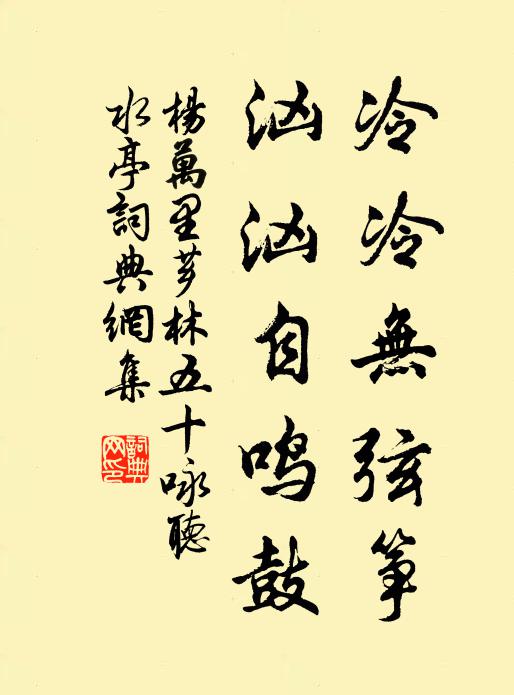 冷冷無弦箏
汹汹自鸣鼓
楊萬里芗林五十咏聽
水亭詞典網集
詞典网印